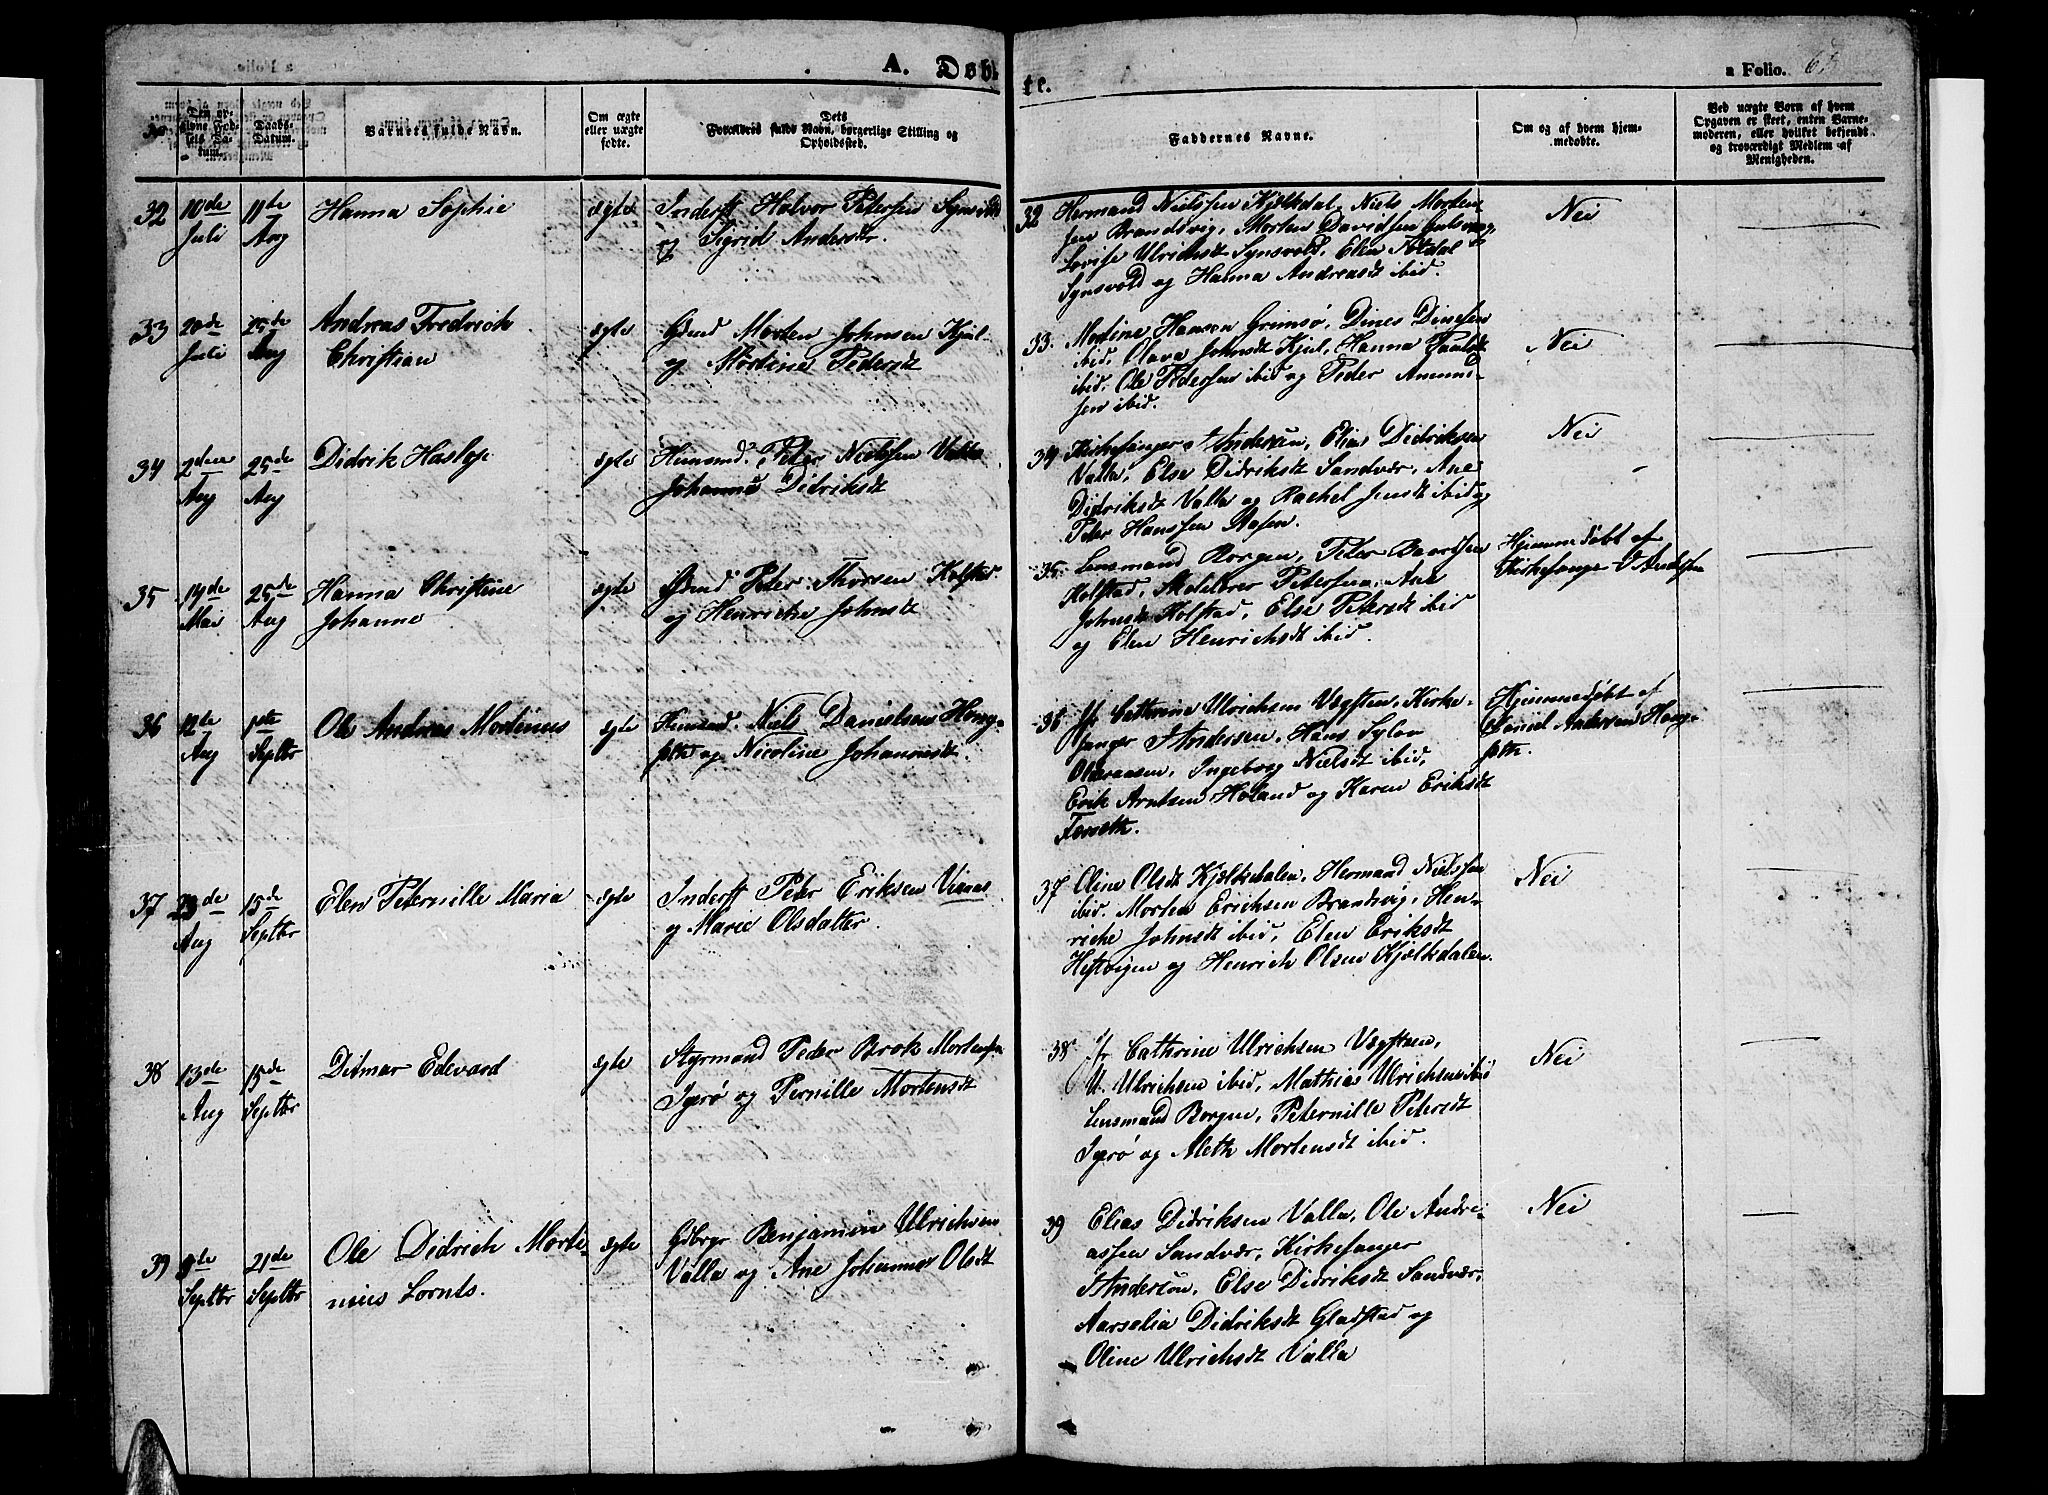 A. Døb-
te.
a Folio. 65
No.
Den op-
givne Fød-
sels Da-
tum.
Daabs-
Datum.
Barnets fulde Navn.
Om ægte
eller uægte
fødte.
Dets
Forældres fulde Navn, borgerlige Stilling og
Opholdssted.
Faddernes Navne.
Om og af hvem hjem-
medøbte.
Ved uægte Børn af hvem
Opgaven er skeet, enten Barne-
moderen, eller hvilket bekjendt
og troværdigt Medlem af
Menigheden.
32 10de
Juli
11te
Aug
Hanna Sophie
ægte
Inderst Halvor Petersen Synsvold
og Sigrid Andersdr.
32 Hermand Nielssen Kjelkdal, Niels Morten-
sen Brandsvig, Morten Davidsen
Lovise Ulrichsdt Synsvold, Elen
Synsvold og Hanna Andreasdt ibid.
Nei
33 20de
Juli
25de
Aug
Andreas Fredrich
Christian
ægte
Gbmd Morten Johnsen Kjul-
og Martine Pedersdt
33. Martine Hanson Grimsø, Dines Dinesen
ibid, Olava Johnsdt Kjul, Hanna Paulsdt
ibid, Ole Pedersen ibid og Peder Amund-
sen ibid.
Nei
34 2den
Aug
25de
Aug
Didrik Hasløp
ægte
Huusmd. Peter Nielssen Valla
Johanna Didriksdt
34 Kirkesanger Andersen, Elias Didriksen
Valla, Else Didriksdt Sandvær, Ane
Didriksdt Valla og Rachel Jensdt ibid og
Peter Hanssen Stasen.
Nei
35 19de
Mai
25de
Aug
Hanna Christine
Johanne
ægte
Gbmd Peter Thorsen Kolstad
og Henriche Johnsdt
35. Lensmand Borgen, Peter Baardsen
Kolstad, Petersen, Ane
Johnsdt Kolstad, Else Petersdt ibid
og Elen Henrichsdt ibid.
Hjemmedøbt af
Kirkesanger Andersen
36 12te
Aug
1ste
Septbr
Ole Andreas Mortinus
ægte
Huusmd. Niels Danielsen Horn-
og Nicoline Johannesdt.
36 Jfr Cathrine Ulrichsen Vægsten, Kirke-
sanger Andersen, Hans Sylov
Ingeborg Nielsdt ibid,
Erik Arntsen Høland og Karen Eriksdt
Forseth.
Hjemmedøbt af
Daniel Andersen
37 23de
Aug
15de
Septbr
Elen Peternille Maria
ægte
Inderst Peter Eriksen Visnæs
og Marie Olsdatter.
37 Oline Olsdt Kjelkdalen, Hermand Nielssen
ibid. Morten Erichsen Brandsvig, Hen-
riche Johnsdt ibid, Elen Eriksdt
Hestvigen og Henrich Olsen Kjelkdalen.
Nei
38 13de
Aug
15de
Septbr
Ditmar Edevard
ægte
Styrmand Peder Brok Mortensen
Igerø og Pernille Mortensdt
38 Jfr Cathrine Ulrichsen Vægsten,
U. Ulrichsen ibid, Mathias Ulrichsen ibid
Lensmand Borgen, Peternille Petersdt
Igerø og Aleth Mortensdt ibid.
Nei
39 9de
Septbr
21de
Septbr
Ole Didrich Morti-
nius Lornts.
ægte
Gdbrgr Benjamin Ulrichsen
Valla og Ane Johanna Olsdt
39 Elias Didriksen Valla, Ole Andre-
assen Sandvær, Kirkesanger
Andersen, Else Didriksdt Sandvær,
Aarselia Didriksdt Gladstad og
Oline Ulrichsdt Valla
Nei